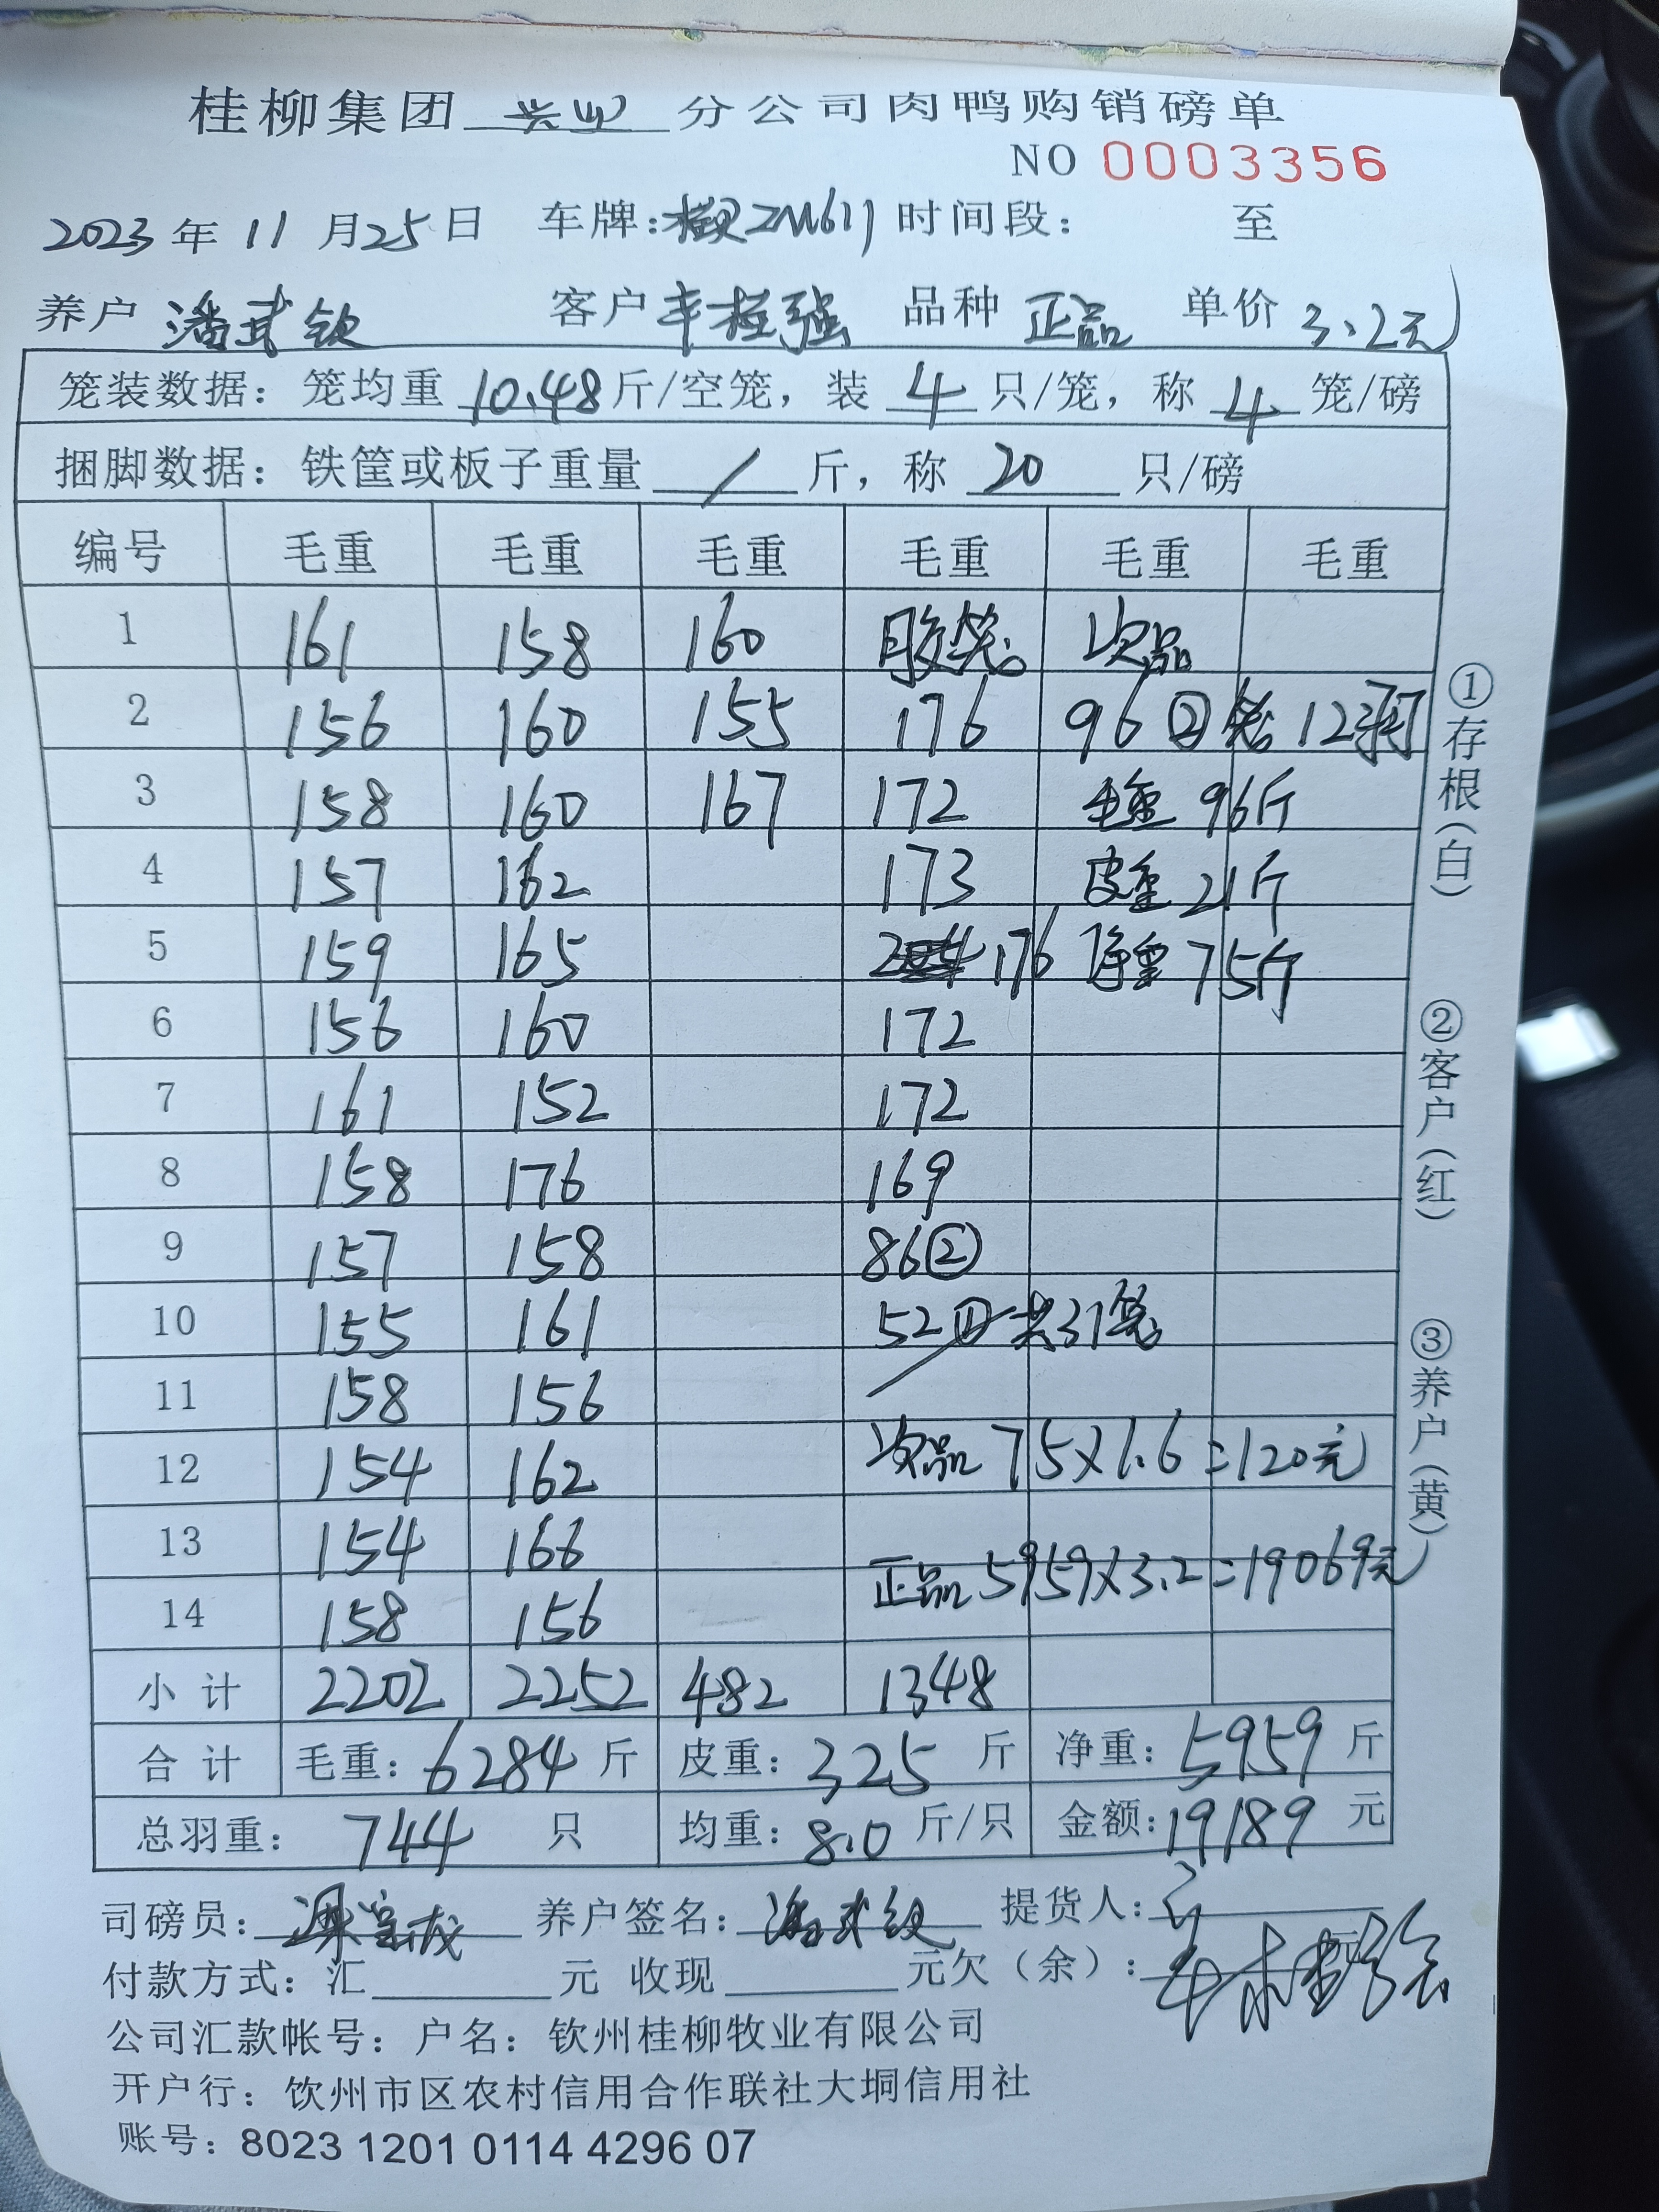 桂柳集团 兴业 分公司肉鸭购销磅单
NO 0003356
2023 年 11 月 25 日 车牌: 时间段: 至
养户 潘武钦 客户 桂强 品种 正品 单价 3.2元
笼装数据: 笼均重 10.48 斤/空笼, 装 4 只/笼, 称 4 笼/磅
捆脚数据: 铁筐或板子重量 / 斤, 称 20 只/磅
编号 毛重 毛重 毛重 毛重 毛重 毛重
1 161 158 160 胶笼 次品
2 156 160 155 176 96 ② 笼 12羽
3 158 160 167 172 毛重 96斤
4 157 162 173 皮重 21斤
5 159 165 176 净重 75斤
6 156 160 172
7 161 152 172
8 158 176 169
9 157 158 86②
10 155 161 52① 共31笼
11 158 156
12 154 162 次品 75×1.6=120元
13 154 166 正品 5959×3.2=19069元
14 158 156
小计 2202 2252 482 1348
合计 毛重: 6284 斤 皮重: 325 斤 净重: 5959 斤
总羽重: 744 只 均重: 8.0 斤/只 金额: 19189 元
司磅员: 养户签名: 潘武钦 提货人:
付款方式: 汇 元 收现 元欠(余):
公司汇款帐号: 户名: 钦州桂柳牧业有限公司
开户行: 饮州市区农村信用合作联社大垌信用社
账号: 8023 1201 0114 4296 07
①存根(白)
②客户(红)
③养户(黄)